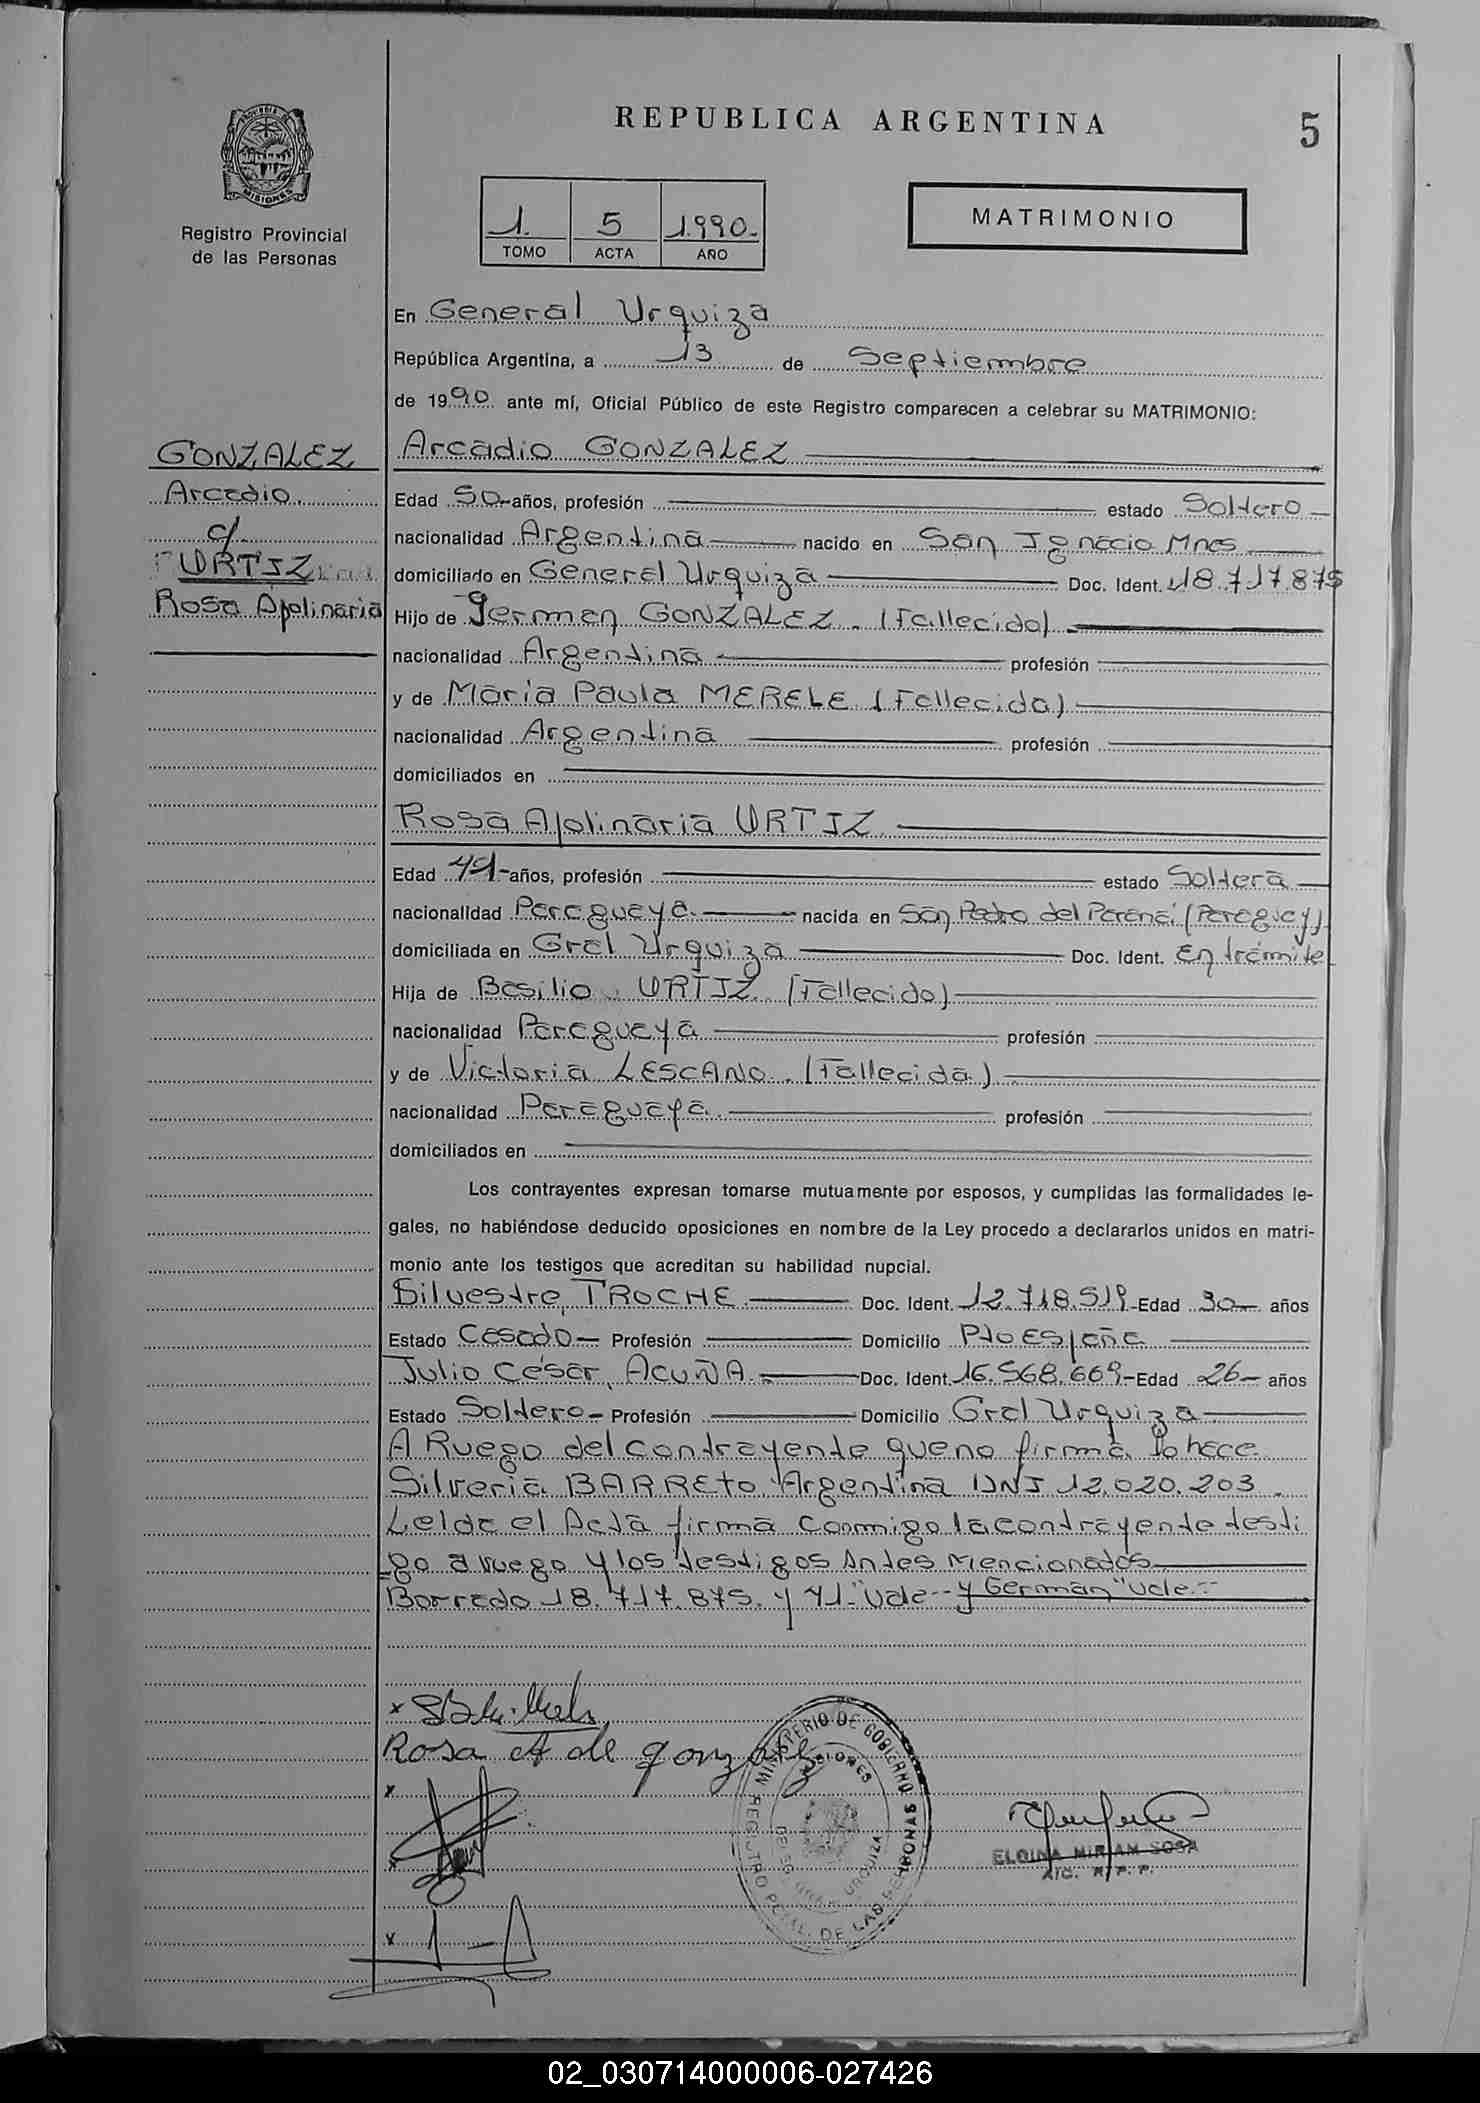 REPUBLICA ARGENTINA
5
PROVINCIA DE
MISIONES
Registro Provincial
de las Personas
1. 5 1.990.-
TOMO ACTA AÑO
MATRIMONIO
En General Urquiza
República Argentina, a 13 de Septiembre
de 1990 ante mí, Oficial Público de este Registro comparecen a celebrar su MATRIMONIO:
GONZALEZ
Arcadio
c/
URTIZ
Rosa Apolinaria
Arcadio GONZALEZ
Edad 50 años, profesión estado Soltero
nacionalidad Argentina nacido en San Ignacio Mnes
domiciliado en General Urquiza Doc. Ident. 18.717.875
Hijo de German GONZALEZ. (Fallecido)
nacionalidad Argentina profesión
y de Maria Paula MERELE (Fallecida)
nacionalidad Argentina profesión
domiciliados en
Rosa Apolinaria URTIZ
Edad 49 años, profesión estado Soltera
nacionalidad Paraguaya nacida en San Pedro del Paraná (Paraguay)
domiciliada en Gral Urquiza Doc. Ident. En trámite
Hija de Basilio URTIZ (Fallecido)
nacionalidad Paraguaya profesión
y de Victoria LESCANO. (Fallecida)
nacionalidad Paraguaya profesión
domiciliados en
Los contrayentes expresan tomarse mutuamente por esposos, y cumplidas las formalidades le-
gales, no habiéndose deducido oposiciones en nombre de la Ley procedo a declararlos unidos en matri-
monio ante los testigos que acreditan su habilidad nupcial.
Silvestre, TROCHE Doc. Ident. 12.718.519 Edad 30 años
Estado Casado Profesión Domicilio Pto España
Julio César, ACUÑA Doc. Ident. 16.568.669 Edad 26 años
Estado Soltero Profesión Domicilio Gral Urquiza
A Ruego del contrayente que no firma lo hace
Silveria BARRETO Argentina DNI 12.020.203.
Leida el Acta firma conmigo la contrayente testi
go a ruego y los testigos Antes Mencionados
Borrado 18.717.875. y 41-"Vale-- y German" vale--
Rosa A de gonzalez
MINISTERIO DE GOBIERNO
MISIONES
REGISTRO PCIAL. DE LAS PERSONAS
URQUIZA
ELGINA MIRIAM SOSA
A/C. R. P. P.
02_030714000006-027426